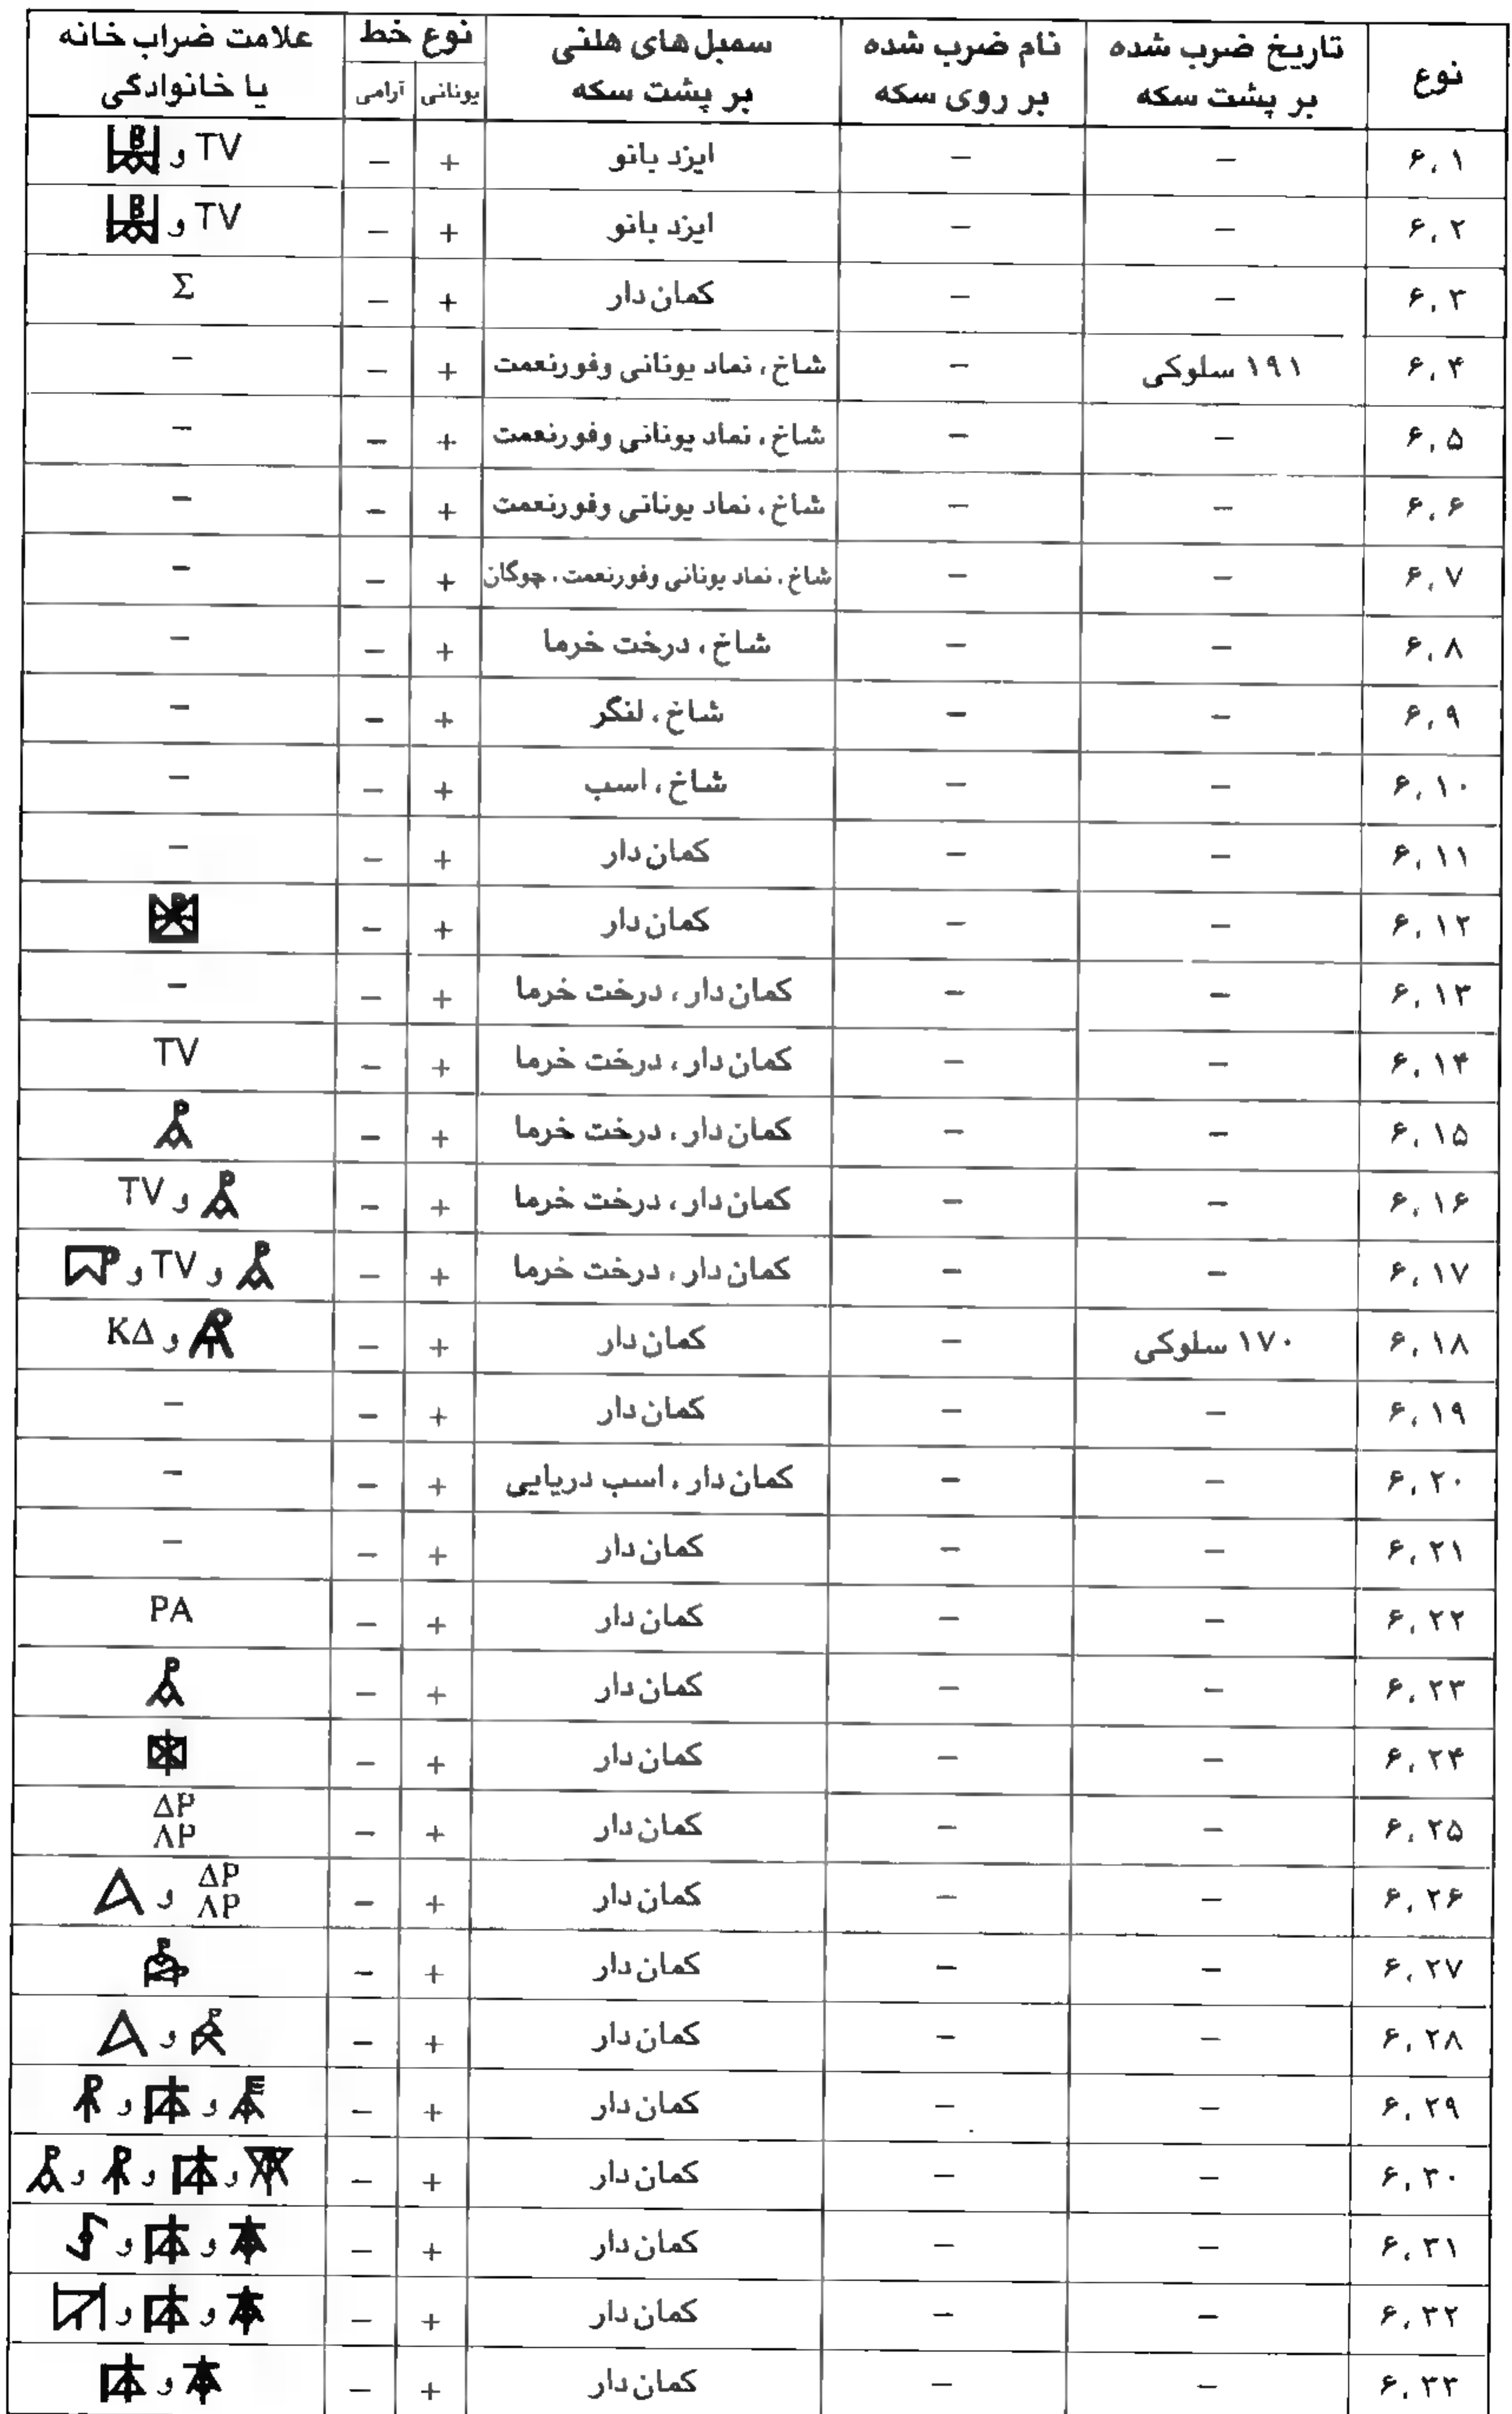 نوع | تاریخ ضرب شده بر پشت سکه | نام ضرب شده بر روی سکه | سمبل های هلنی بر پشت سکه | نوع خط: یونانی | آرامی | علامت ضراب خانه یا خانوادگی
۶,۱ | – | – | ایزد بانو | + | – | TV و
۶,۲ | – | – | ایزد بانو | + | – | TV و
۶,۳ | – | – | کمان دار | + | – | Σ
۶,۴ | ۱۹۱ سلوکی | – | شاخ، نماد یونانی وفورنعمت | + | – | –
۶,۵ | – | – | شاخ، نماد یونانی وفورنعمت | + | – | –
۶,۶ | – | – | شاخ، نماد یونانی وفورنعمت | + | – | –
۶,۷ | – | – | شاخ، نماد یونانی وفورنعمت، چوگان | + | – | –
۶,۸ | – | – | شاخ، درخت خرما | + | – | –
۶,۹ | – | – | شاخ، لنگر | + | – | –
۶,۱۰ | – | – | شاخ، اسب | + | – | –
۶,۱۱ | – | – | کمان دار | + | – | –
۶,۱۲ | – | – | کمان دار | + | – |
۶,۱۳ | – | – | کمان دار، درخت خرما | + | – | –
۶,۱۴ | – | – | کمان دار، درخت خرما | + | – | TV
۶,۱۵ | – | – | کمان دار، درخت خرما | + | – |
۶,۱۶ | – | – | کمان دار، درخت خرما | + | – | و TV
۶,۱۷ | – | – | کمان دار، درخت خرما | + | – | و TV و
۶,۱۸ | ۱۷۰ سلوکی | – | کمان دار | + | – | و ΚΔ
۶,۱۹ | – | – | کمان دار | + | – | –
۶,۲۰ | – | – | کمان دار، اسب دریایی | + | – | –
۶,۲۱ | – | – | کمان دار | + | – | –
۶,۲۲ | – | – | کمان دار | + | – | PA
۶,۲۳ | – | – | کمان دار | + | – |
۶,۲۴ | – | – | کمان دار | + | – |
۶,۲۵ | – | – | کمان دار | + | – | ΔΡ ΛΡ
۶,۲۶ | – | – | کمان دار | + | – | ΔΡ ΛΡ و
۶,۲۷ | – | – | کمان دار | + | – |
۶,۲۸ | – | – | کمان دار | + | – | و
۶,۲۹ | – | – | کمان دار | + | – | و و
۶,۳۰ | – | – | کمان دار | + | – | و و و
۶,۳۱ | – | – | کمان دار | + | – | و و
۶,۳۲ | – | – | کمان دار | + | – | و و
۶,۳۳ | – | – | کمان دار | + | – | و